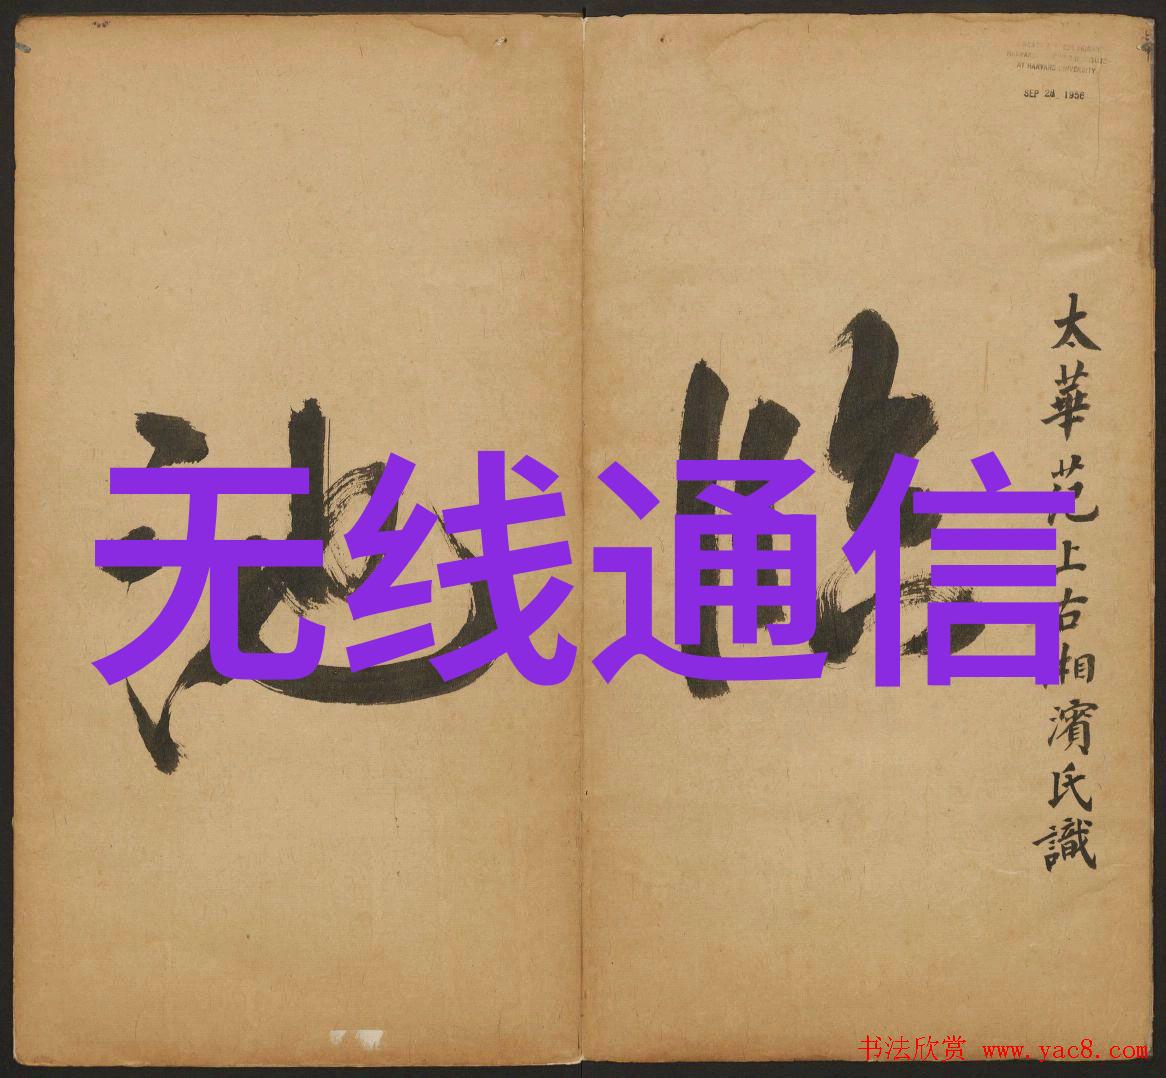 AT HARVARD UNIVERSITY
SEP 28 1956
太華范上古湘濱氏識
无线通信
书法欣赏 www.yac8.com